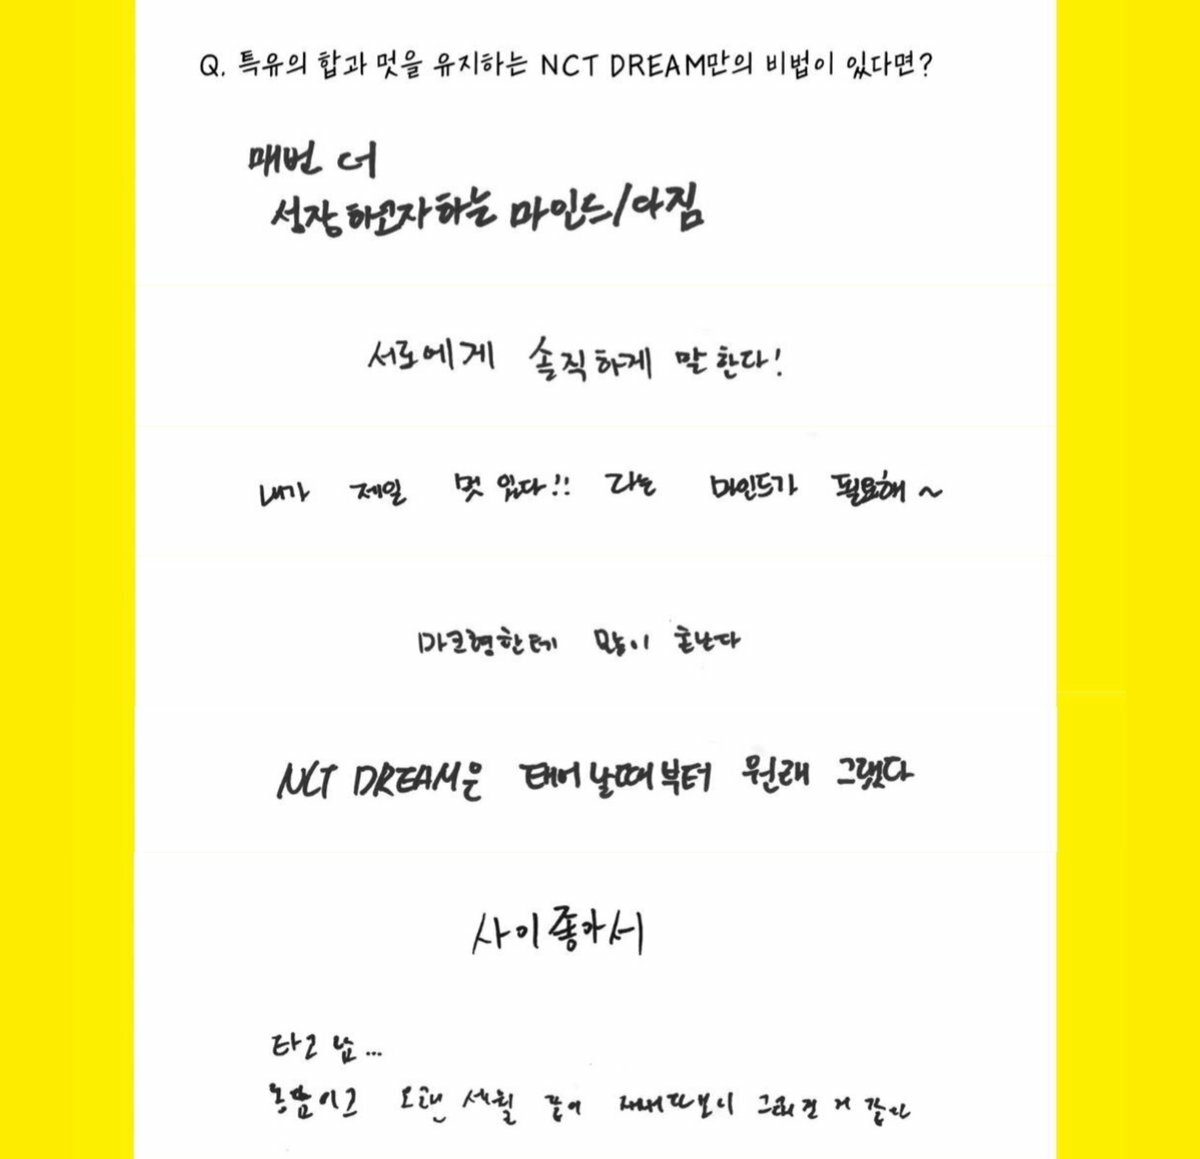 Q. 특유의 합과 멋을 유지하는 NCT DREAM만의 비법이 있다면?
매번 더
성장하고자하는 마인드/다짐
서로에게 솔직하게 말한다!
내가 제일 멋있다!! 라는 마인드가 필요해~
마크형한테 많이 혼난다
NCT DREAM은 태어날때부터 원래 그랬다
사이좋아서
타고남...
농담이고 오랜 세월 같이 지내다보니 그리된 거 같다